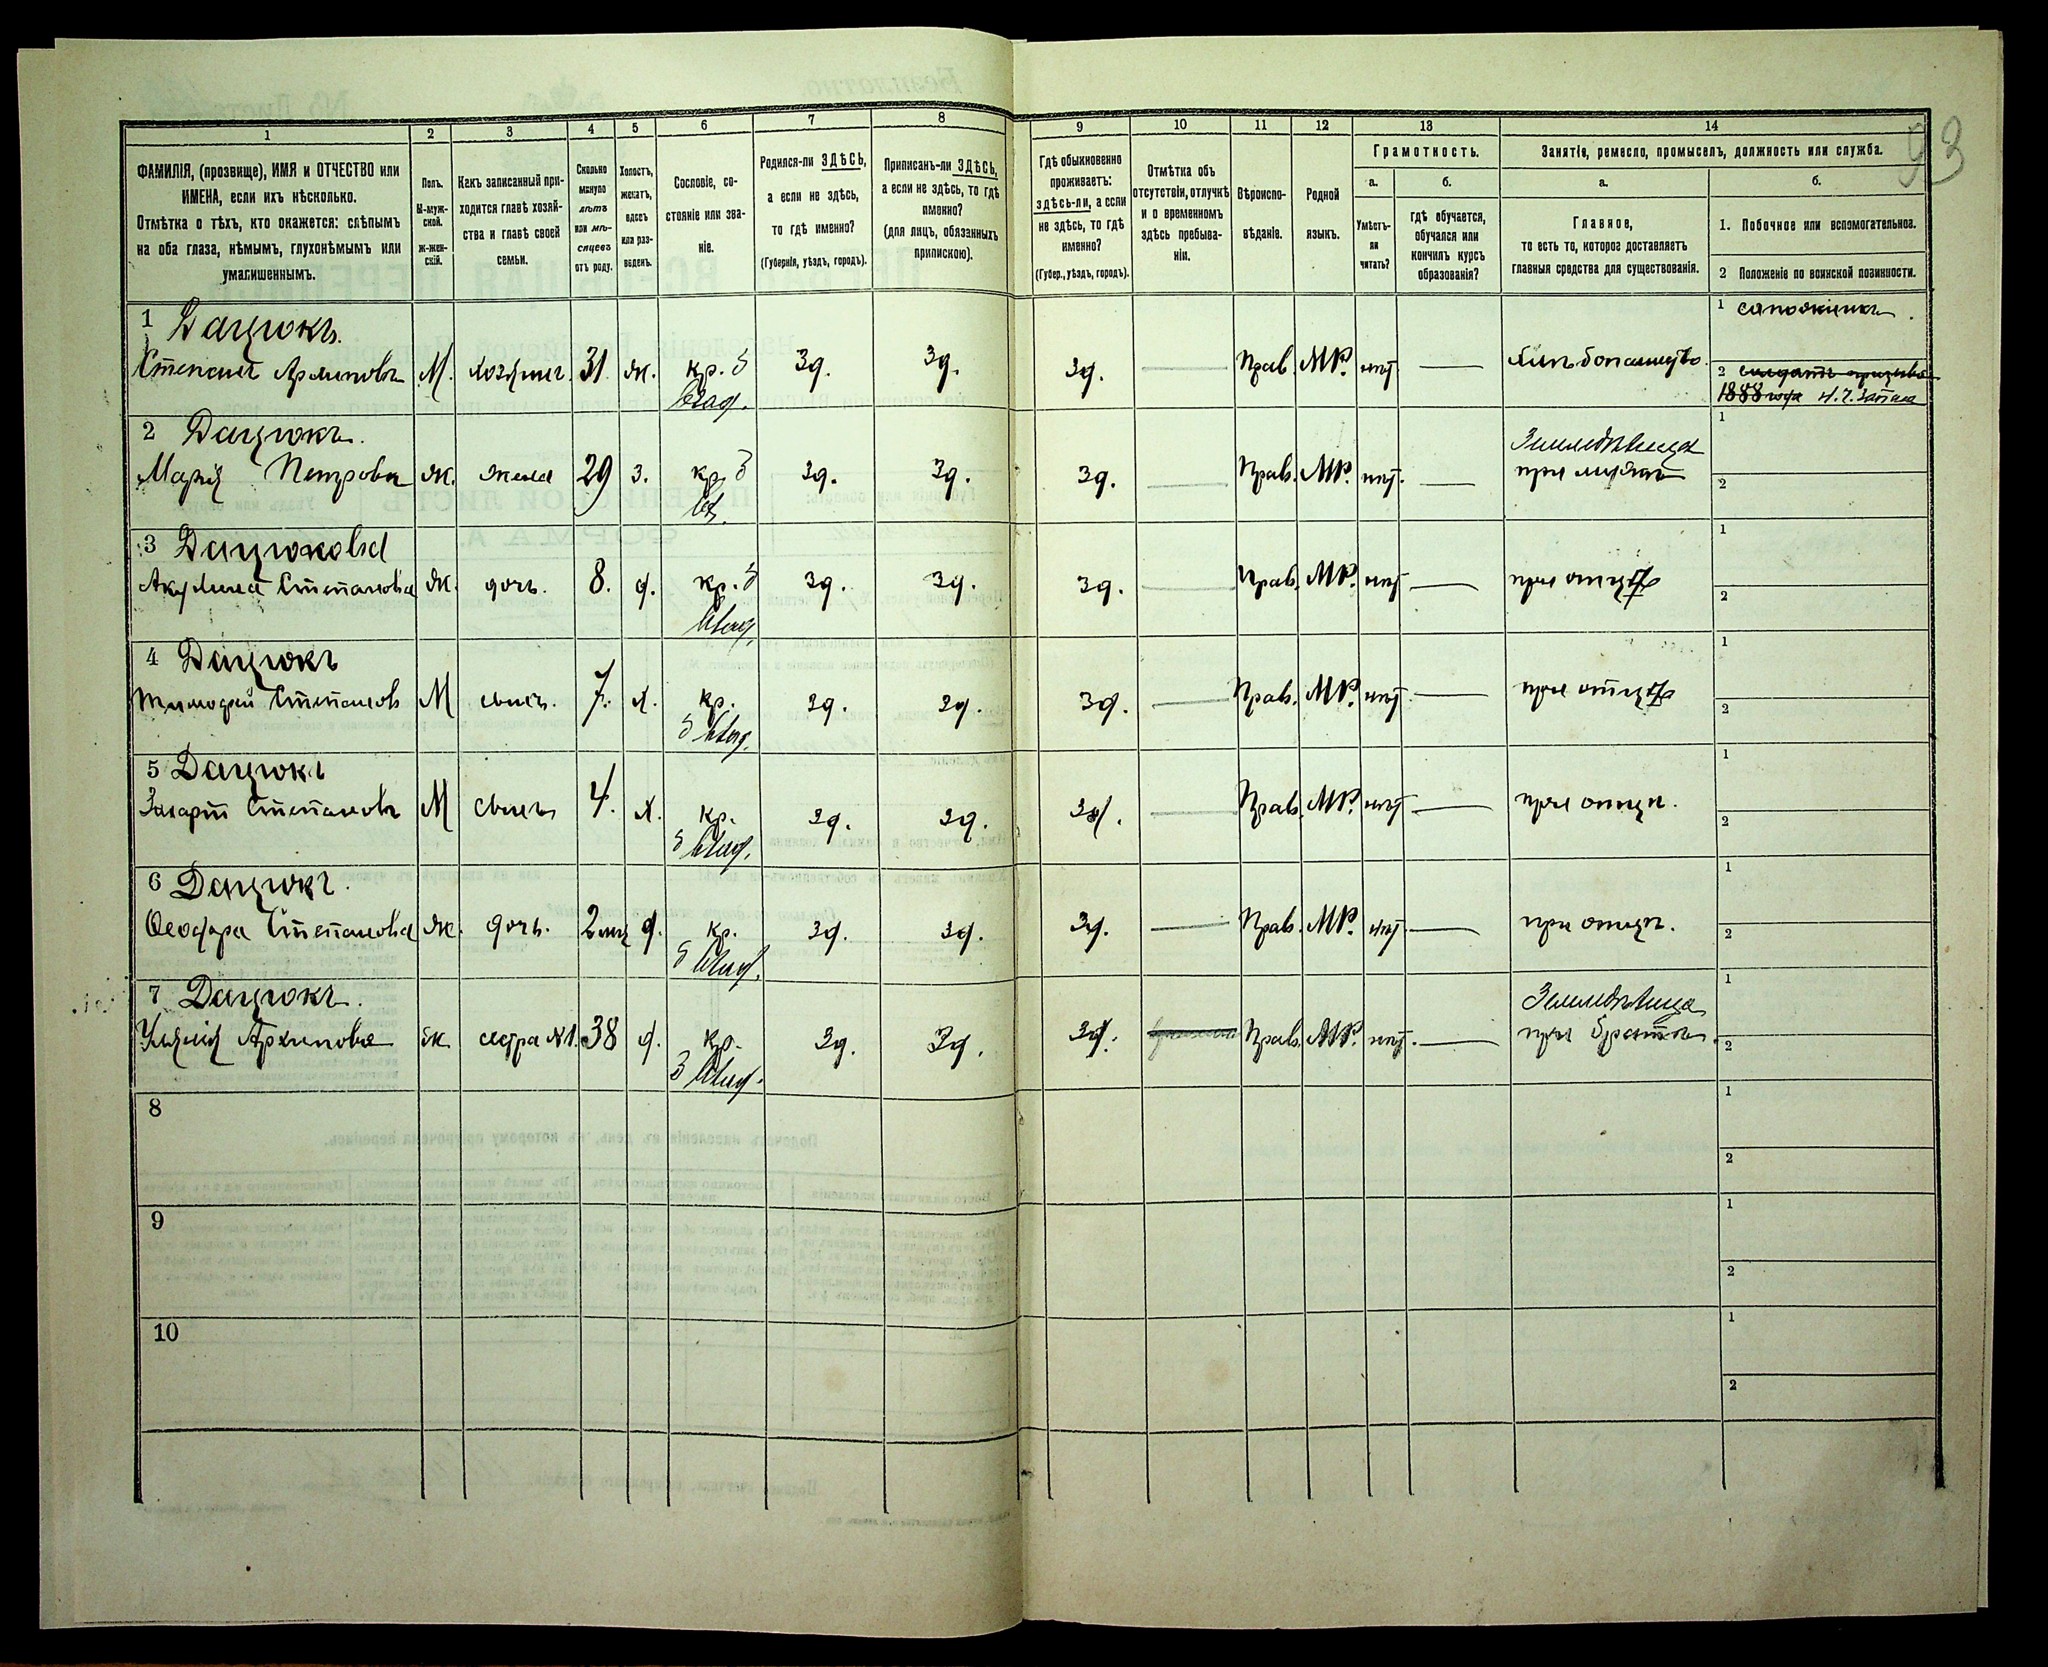 93
1 2 3 4 5 6 7 8 9 10 11 12 13 14
ФАМИЛІЯ, (прозвище), ИМЯ и ОТЧЕСТВО или
ИМЕНА, если ихъ нѣсколько.
Отмѣтка о тѣхъ, кто окажется: слѣпымъ
на оба глаза, нѣмымъ, глухонѣмымъ или
умалишеннымъ.
Полъ.
М-муж-
ской.
ж-жен-
скій.
Какъ записанный при-
ходится главѣ хозяй-
ства и главѣ своей
семьи.
Сколько
минуло
лѣтъ
или мѣ-
сяцевъ
отъ роду.
Холостъ,
женатъ,
вдовъ
или раз-
веденъ.
Сословіе, со-
стояніе или зва-
ніе.
Родился-ли ЗДѢСЬ,
а если не здѣсь,
то гдѣ именно?
(Губернія, уѣздъ, городъ).
Приписанъ-ли ЗДѢСЬ,
а если не здѣсь, то гдѣ
именно?
(для лицъ, обязанныхъ
припискою).
Гдѣ обыкновенно
проживаетъ:
здѣсь-ли, а если
не здѣсь, то гдѣ
именно?
(Губер., уѣздъ, городъ).
Отмѣтка объ
отсутствіи, отлучкѣ
и о временномъ
здѣсь пребыва-
ніи.
Вѣроиспо-
вѣданіе.
Родной
языкъ.
Грамотность.
а.
Умѣетъ-
ли
читать?
б.
гдѣ обучается,
обучался или
кончилъ курсъ
образованія?
Занятіе, ремесло, промыселъ, должность или служба.
а.
Главное,
то есть то, которое доставляетъ
главныя средства для существованія.
б.
1. Побочное или вспомогательное.
2 Положеніе по воинской повинности.
1 Дацюкъ.
Степанъ Архиповъ М. хозяинъ. 31. ж. кр. з зд. зд. зд. Прав. МР. нѣт — хлѣбопашество.
влад.
1 сапожникъ.
2 солдатъ призыва
1888 года Н. Ч. Запаса
2 Дацюкъ.
Марія Петрова Ж. жена 29 з. кр. з зд. зд. зд. — Прав. МР. нѣт. —
Земледѣлица
при мужѣ
1
2
3 Дацюкова
Акулина Степанова Ж. дочь. 8. д. кр. з зд. зд. зд. — Прав. МР. нѣт —
влад.
при отцѣ
1
2
4 Дацюкъ
Тимофей Степановъ М сынъ. 7. х. кр. зд. зд. зд. — Прав. МР. нѣт — при отцѣ
з влад.
1
2
5 Дацюкъ
Захарій Степановъ М сынъ 4. х. кр. зд. зд. зд. — Прав. МР. нѣт — при отцѣ.
з влад.
1
2
6 Дацюкъ.
Ѳеодора Степанова Ж. дочь. 2 мц д. кр. зд. зд. зд. — Прав. МР. нѣт — при отцѣ.
з влад.
1
2
7 Дацюкъ.
Архипова ж. сестра №1. 38 д. кр. зд. зд. зд. Прав. МР. нѣт. —
з влад.
Земледѣлица
при братѣ.
1
2
8
1
2
9
1
2
10
1
2